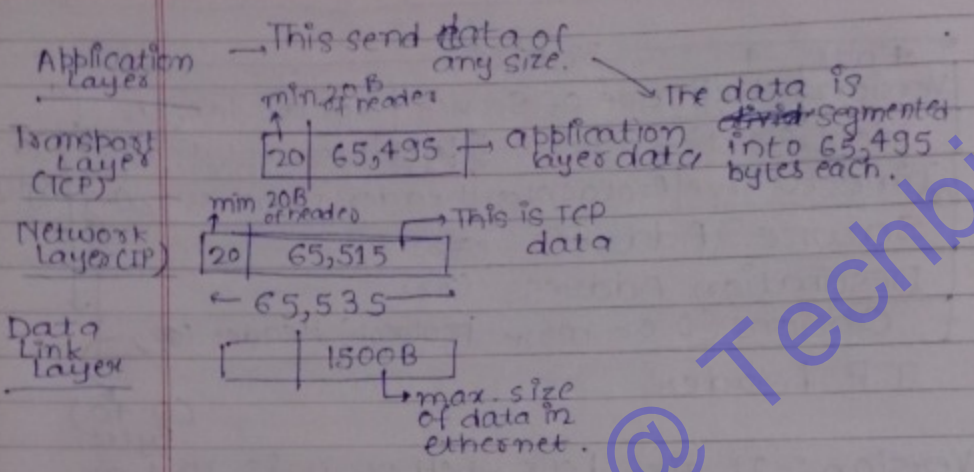 Application
Layer
→ This send data of
any size.
The data is
segmented
into 65,495
bytes each.
min 20B
of header
Transport
Layer
(TCP)
20 65,495
application
layer data
min 20B
of header
Network
Layer (IP)
20 65,515
This is TCP
data
← 65,535 →
Data
Link
Layer
1500B
max. size
of data in
ethernet.
@ Techbi